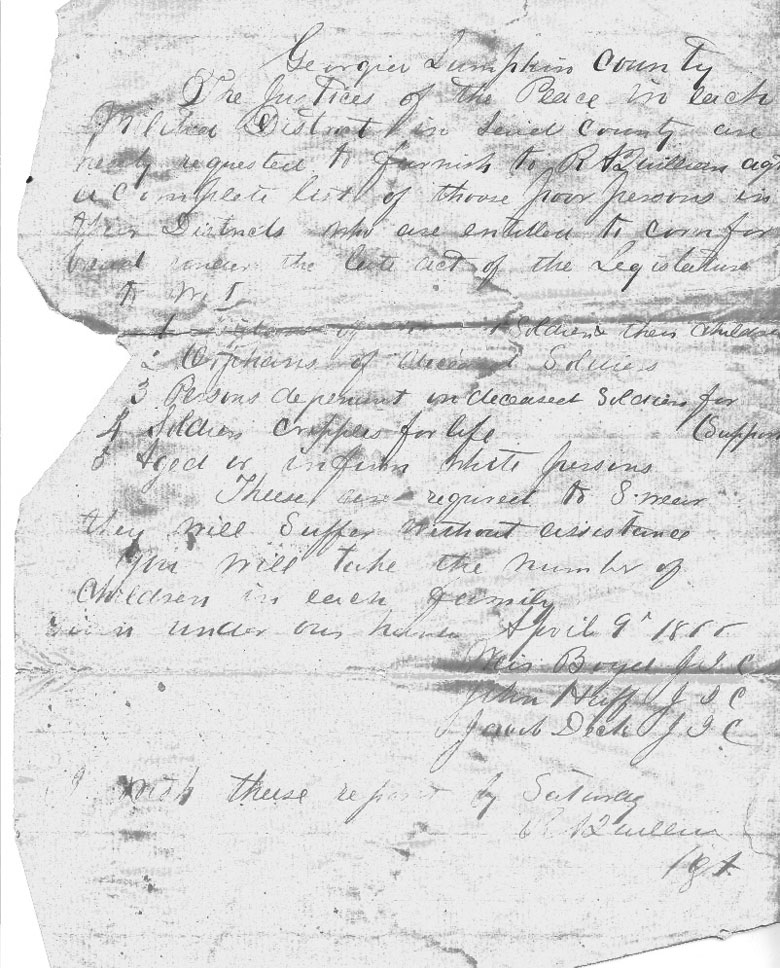 Georgia Lumpkin County
The Justices of the Peace in each
District in Said County are
requested to furnish to R
a complete list of those poor persons in
Districts who are entitled to corn for
bread under the late act of the Legislature
to wit
1 of Soldiers their children
2 Orphans of Soldiers
3 Persons dependent on deceased Soldiers for
4 Soldiers cripples for life (Suppor
5 Aged or infirm white persons
These are required to Swear
they will Suffer without assistance
You will take the number of
Children in each family
under our hands April 9 186
Boyd J I C
John Huff J I C
Jacob J I C
these report by Saturday
R
Agt